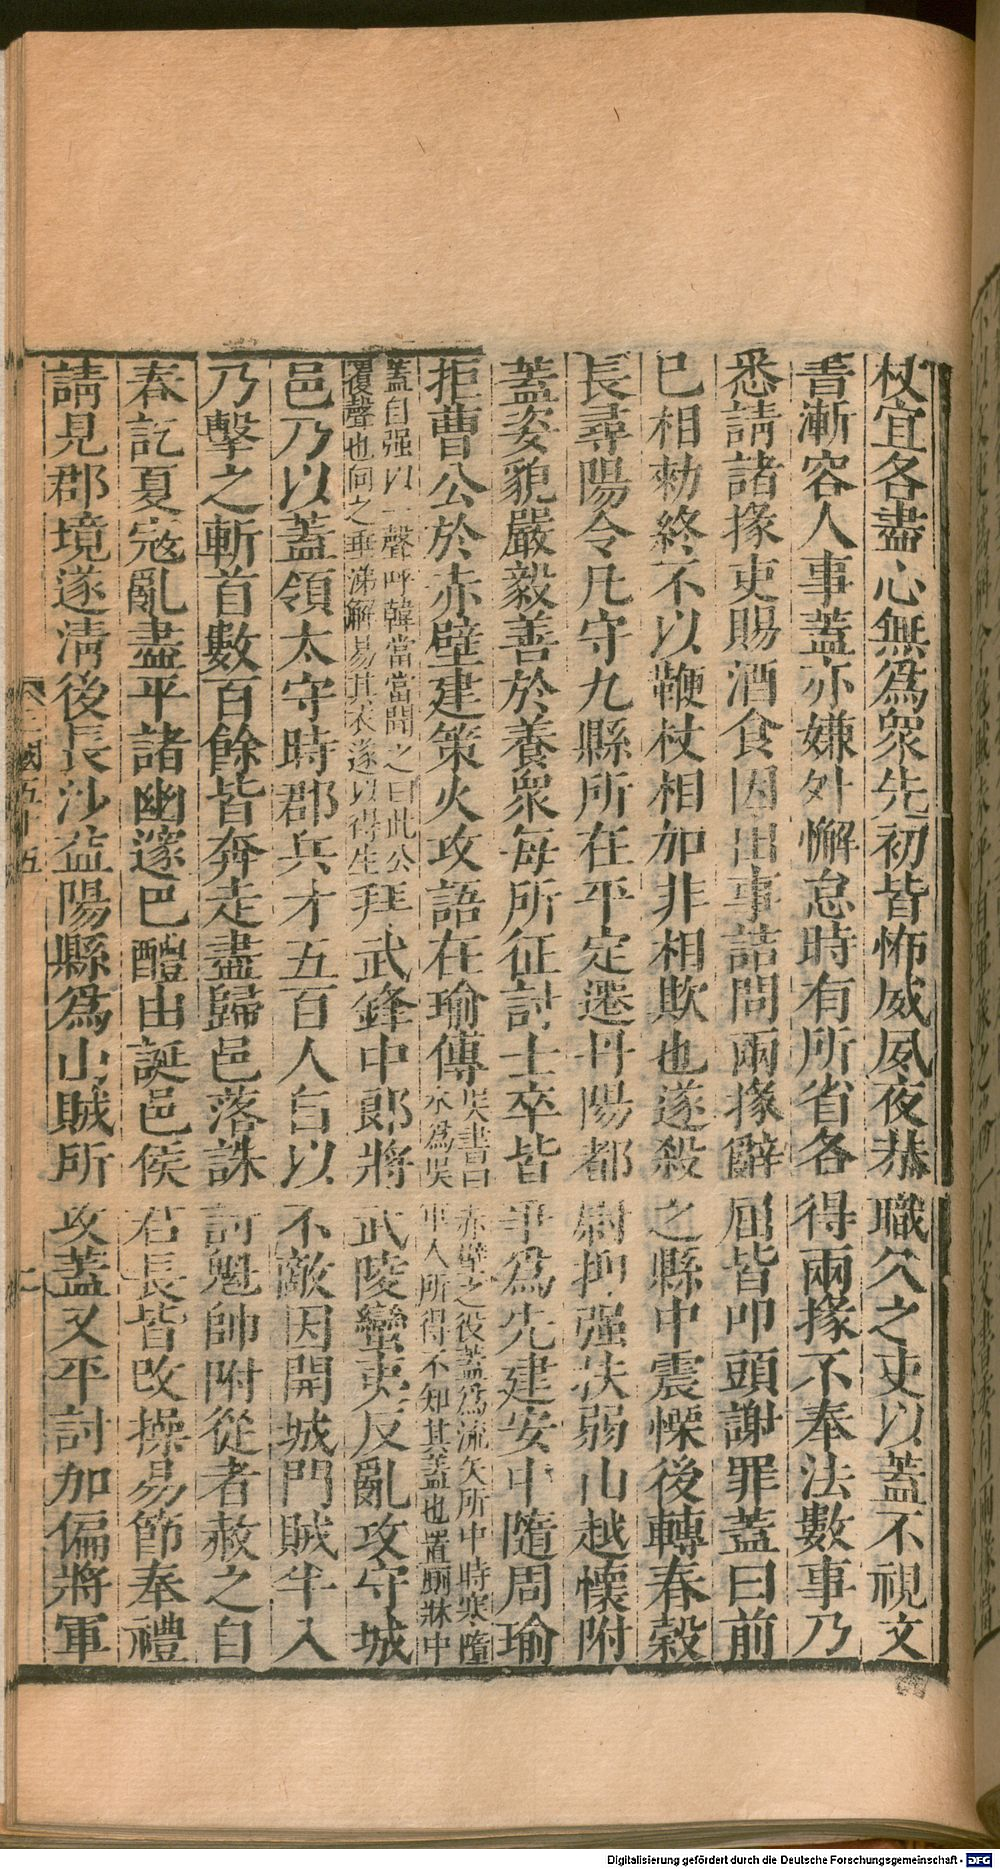 杖宜各盡心無爲衆先初皆怖威夙夜恭職久之吏以蓋不視文
書漸容人事蓋亦嫌外懈怠時有所省各得兩掾不奉法數事乃
悉請諸掾吏賜酒食因出事詰問兩掾辭屈皆叩頭謝罪蓋曰前
已相勑終不以鞭杖相加非相欺也遂殺之縣中震慄後轉春穀
長尋陽令凡守九縣所在平定遷丹陽都尉抑强扶弱山越懷附
蓋姿貌嚴毅善於養衆每所征討士卒皆爭爲先建安中隨周瑜
拒曹公於赤壁建策火攻語在瑜傳吳書曰赤壁之役蓋爲流矢所中時寒墮
水爲吳軍人所得不知其蓋也置廁牀中
蓋自强以一聲呼韓當當聞之曰此公
覆聲也向之垂涕解易其衣遂以得生拜武鋒中郎將武陵蠻夷反亂攻守城
邑乃以蓋領太守時郡兵才五百人自以不敵因開城門賊半入
乃擊之斬首數百餘皆奔走盡歸邑落誅討魁帥附從者赦之自
春訖夏寇亂盡平諸幽邃巴醴由誕邑侯君長皆改操易節奉禮
請見郡境遂清後長沙益陽縣爲山賊所攻蓋又平討加偏將軍
三國五十五
二
Digitalisierung gefördert durch die Deutsche Forschungsgemeinschaft - DFG